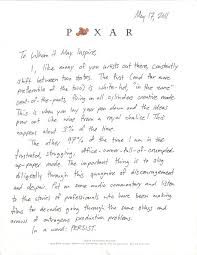 May 17, 2011
PIXAR
To Whom it May Inspire,
I, like many of you artists out there, constantly
shift between two states. The first (and far more
preferable of the two) is white-hot, "in the zone"
seat-of-the-pants, firing on all cylinders creative mode.
This is when you lay your pen down and the ideas
pour out like wine from a royal chalice! This
happens about 3% of the time.
The other 97% of the time I am in the
frustrated, struggling, office-corner-full-of-crumpled-
up-paper mode. The important thing is to slog
diligently through this quagmire of discouragement
and despair. Put on some audio commentary and listen
to the stories of professionals who have been making
films for decades going through the same slings and
arrows of outrageous production problems.
In a word: PERSIST.